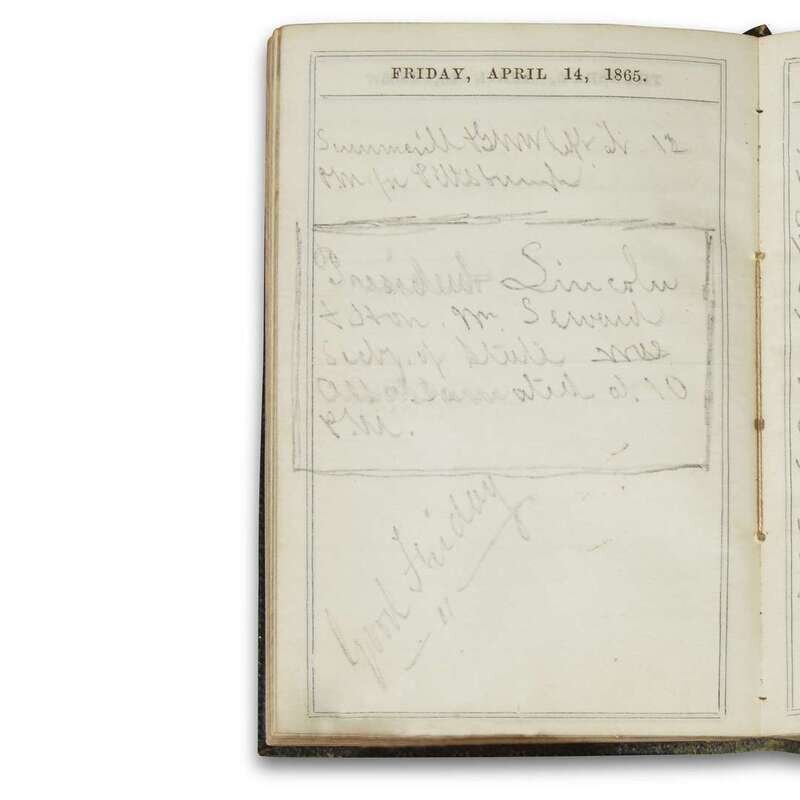 FRIDAY, APRIL 14, 1865.
left at 12
P.M. for Pittsburgh
President Lincoln
& Hon. Wm. Seward
Secty. of State
Assassinated at 10
P.M.
Good Friday